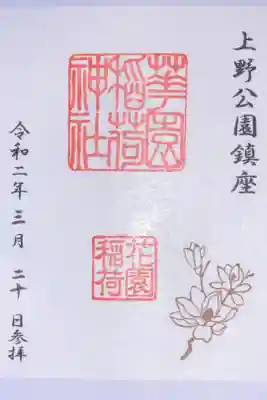 上野公園鎮座
華園
稲荷
神社
花園
稲荷
令和二年三月二十日参拝